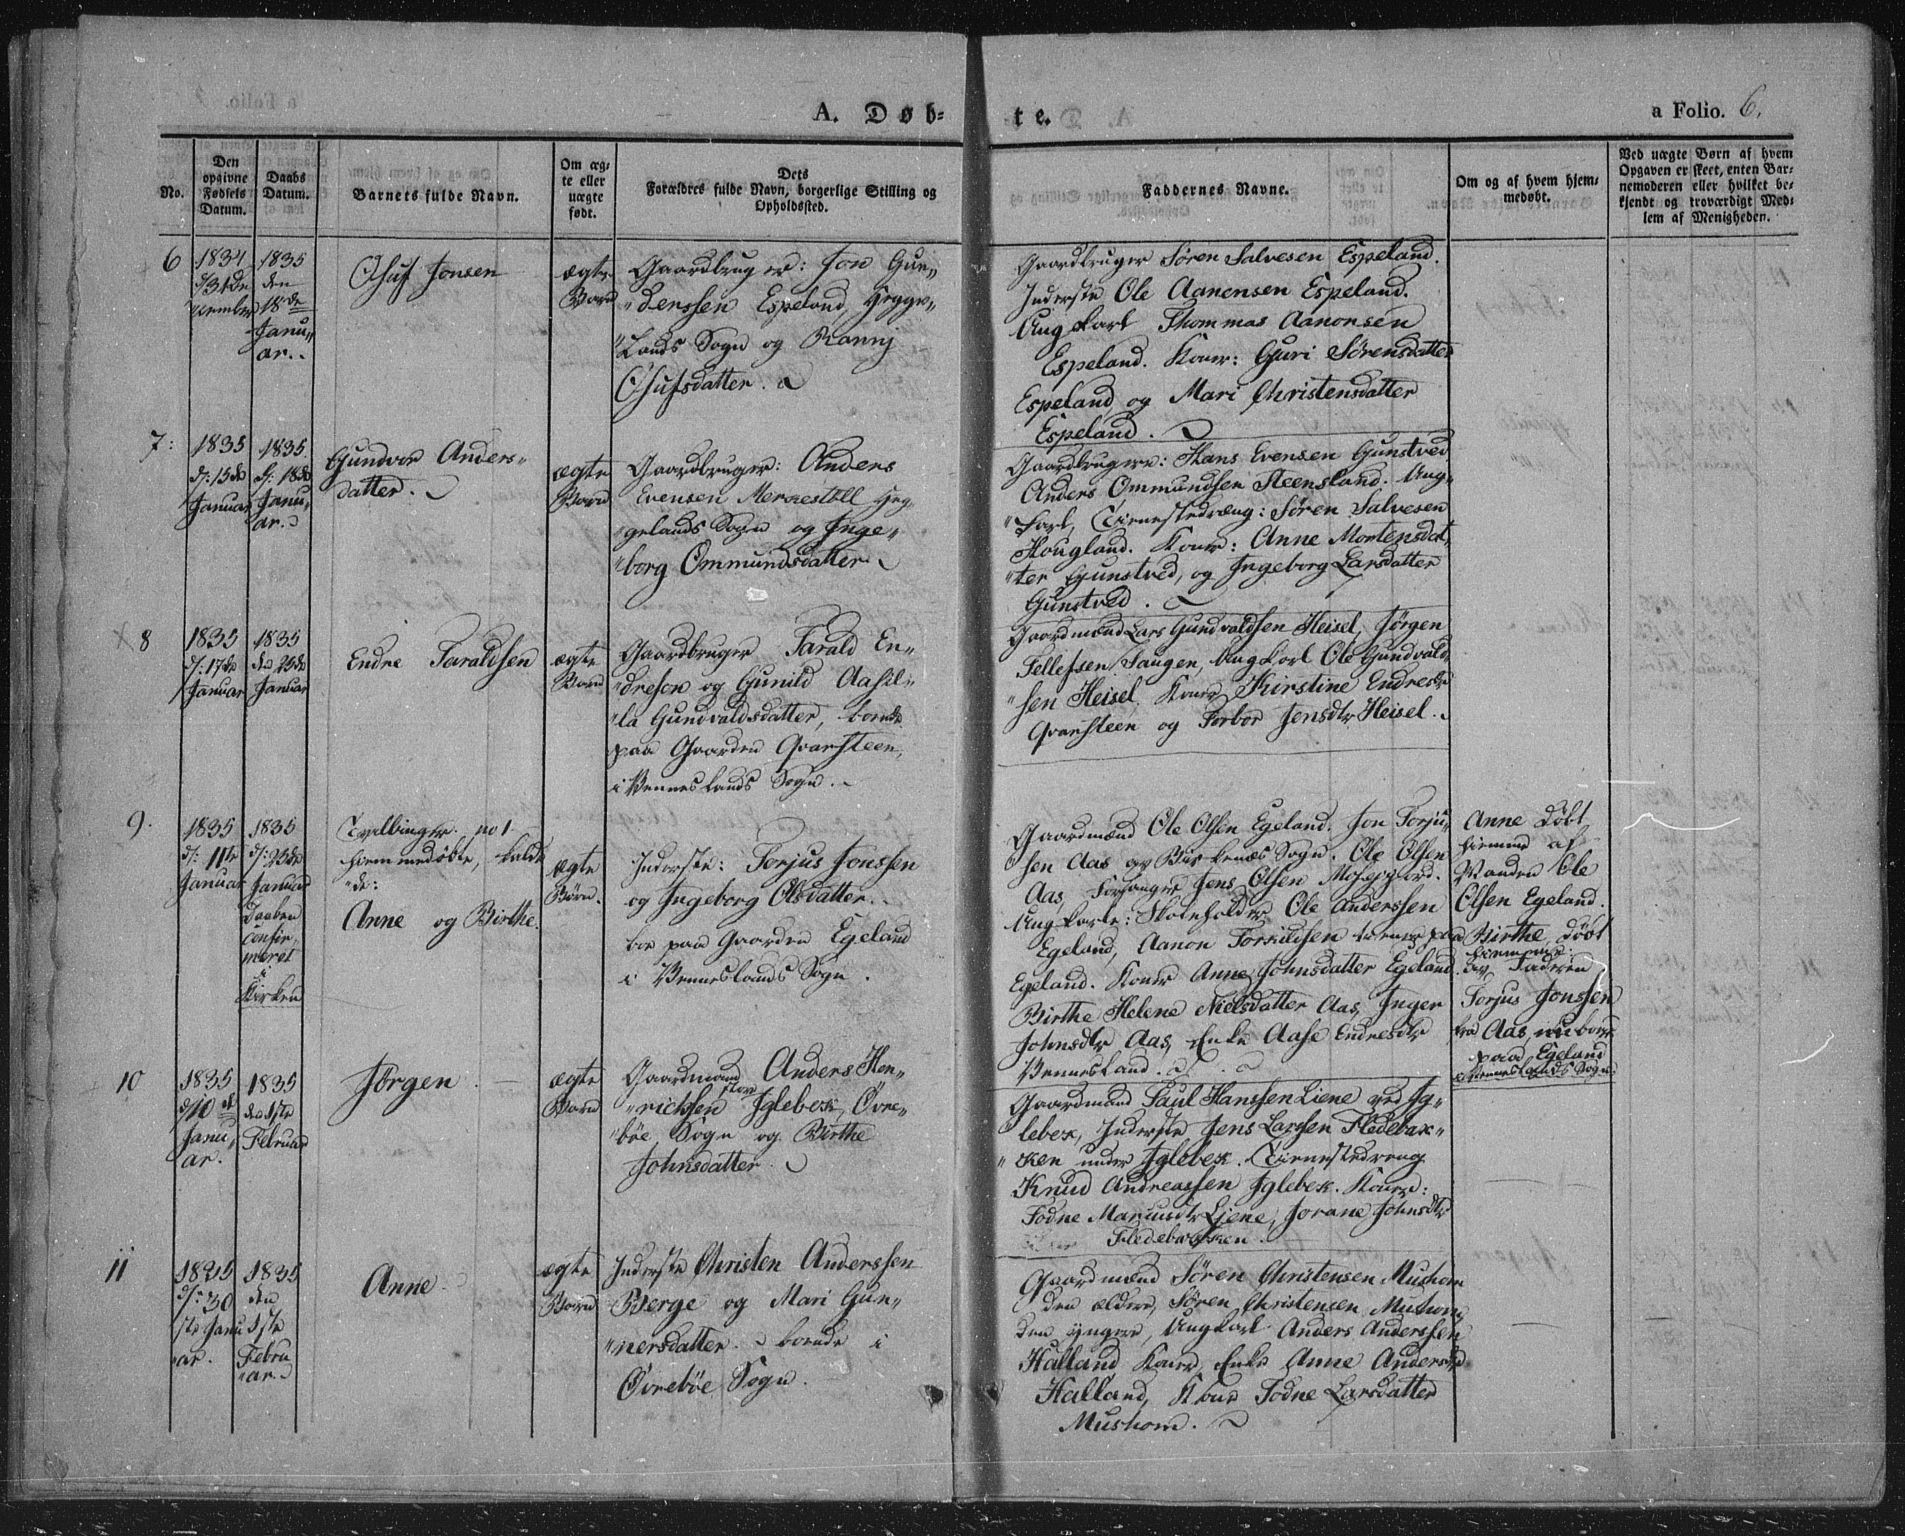 A. Døb-
te.
a Folio. 6.
No.
Den
opgivne
Fødsels
Datum.
Daabs
Datum.
Barnets fulde Navn.
Om æg-
te eller
uægte
født.
Dets
Forældres fulde Navn, borgerlige Stilling og
Opholdssted.
Faddernes Navne.
Om og af hvem hjem-
medøbt.
Ved uægte Børn af hvem
Opgaven er skeet, enten Bar-
nemoderen eller hvilket be-
kjendt og troværdigt Med-
lem af Menigheden.
6
1834
1835
den
18de
Janu"
ar.
Jonsen
ægte
Barn
Gaardbruger: Jon Gun"
"derssen Espeland, Hegge"
"Lands Sogn og
datter.
Gaardbruger Søren Salvesen Espeland.
Inderste Ole Aanensen Espeland.
Ungkarl Thommas Aanonsen
Espeland. Koner: Guri Sørensdatter
Espeland og Mari Christensdatter
Espeland.
7:
1835
d: 15de
Januar
1835.
d: 18de
Janu"
ar.
Gundvor Anders"
datter.
ægte
Barn
Gaardbruger: Anders
Evensen Heg
"gelands Sogn og Inge"
"borg Ommundsdatter.
Gaardbrugere: Hans Evensen Gunstved
Anders Ommundsen Steensland. Ung"
"karl, Tienestedreng: Søren Salvesen
Hougland. Koner: Anne Mortensdat"
"ter Gunstved, og Ingeborg Larsdatter
Gunstved.
8
1835
d: 17de
Januar
1835
den 25de
Januar
Endre Taraldsen
ægte
Barn
Gaardbruger Tarald En"
"dresen og Gunild Aasil"
"la Gundvaldsdatter, boende
paa Gaarden Qvarsteen,
i Venneslands Sogn.
Gaardmænd Lars Gundvaldsen Heisel, Jørgen
Tellefsen Ungkarl Ole Gundvald"
"sen Heisel. Koner Kirstine Endresdtr
Qvarsteen og Torbor Jensdtr Heisel.
9.
1835
d: 11te
Januar
1835
d: 25de
Januar
Daaben
confir"
meret
i
Kirken
Tvillinger. no 1
hjemmedøbte, kald
"de:
Anne og Birthe.
ægte
Børn.
Inderste: Torjus Jonssen
og Ingeborg Olsdatter.
boe paa Gaarden Egeland
i Venneslands Sogn.
Gaardmænd Ole Olsen Egeland. Jon Torju"
sen Aas av Birkenæs Sogn. Ole Olsen
Aas, Forsanger Jens Olsen
Ungkarle: Skoleholder Ole Anderssen
Egeland, Aanon tienende paa
Egeland. Koner Anne Johnsdatter Egeland.
Birthe Helene Nielsdatter Aas, Inger
Johnsdtr Aas, Enke Aase Endresdtr
Vennesland.
Anne døbt
hiemme af
Manden Ole
Olsen Egeland.
Birthe, døbt
hiemme
av Faderen
Torjus Jonssen
fra Aas, nu boende
paa Egeland
Venneslands Sogn.
10
1835
d: 10de
Janu"
ar.
1835
den 1ste
Februar
Jørgen
ægte
Barn
Gaardmand Anders Hen"
"richssen Iglebek, Øvre"
"bøe Sogn og Birthe
Johnsdatter.
Gaardmand Paul Hanssen Liene ved Ig"
lebek, Inderste Jens Larssen Fledebak"
"ken under Iglebek. Tienestedreng
Knud Andreassen Iglebek. Koner:
Todne Liene, Jorane Johnsdtr
Fledebakken.
11
1835
d: 30
Janu
ar.
1835
den
1ste
Febru
ar.
Anne.
ægte
Barn
Inderste Christen Anderssen
Berge og Mari Gun"
"nersdatter. boende i
Øvrebøe Sogn.
Gaardmænd Søren Christensen Mushom
den ældre, Søren Christensen Mushom
den yngere, Ungkarl Anders Anderssen
Halland Koner, Enke Anne Andersdtr
Halland, Kone Todne Larsdatter
Mushom.